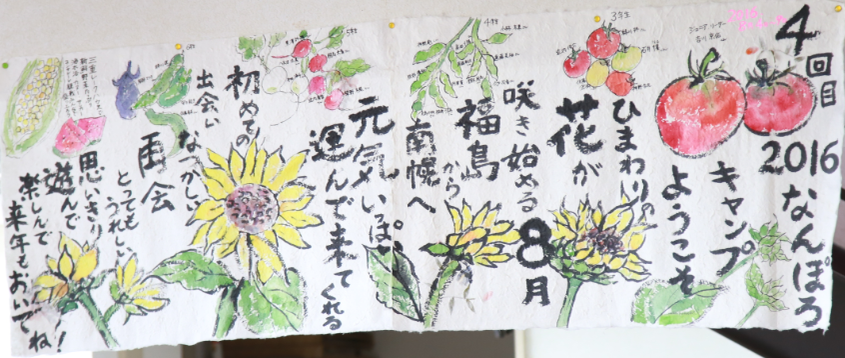 4回目
2016なんぽろ
キャンプ
ようこそ
ひまわりの
花が
咲き始める8月
福島
から
南幌へ
元気いっぱい
運んで来てくれる
初めての
出会い
なつかしい
再会
とっても
うれしい
思いきり
遊んで
楽しんで
来年もおいでね!
3年生
4年生